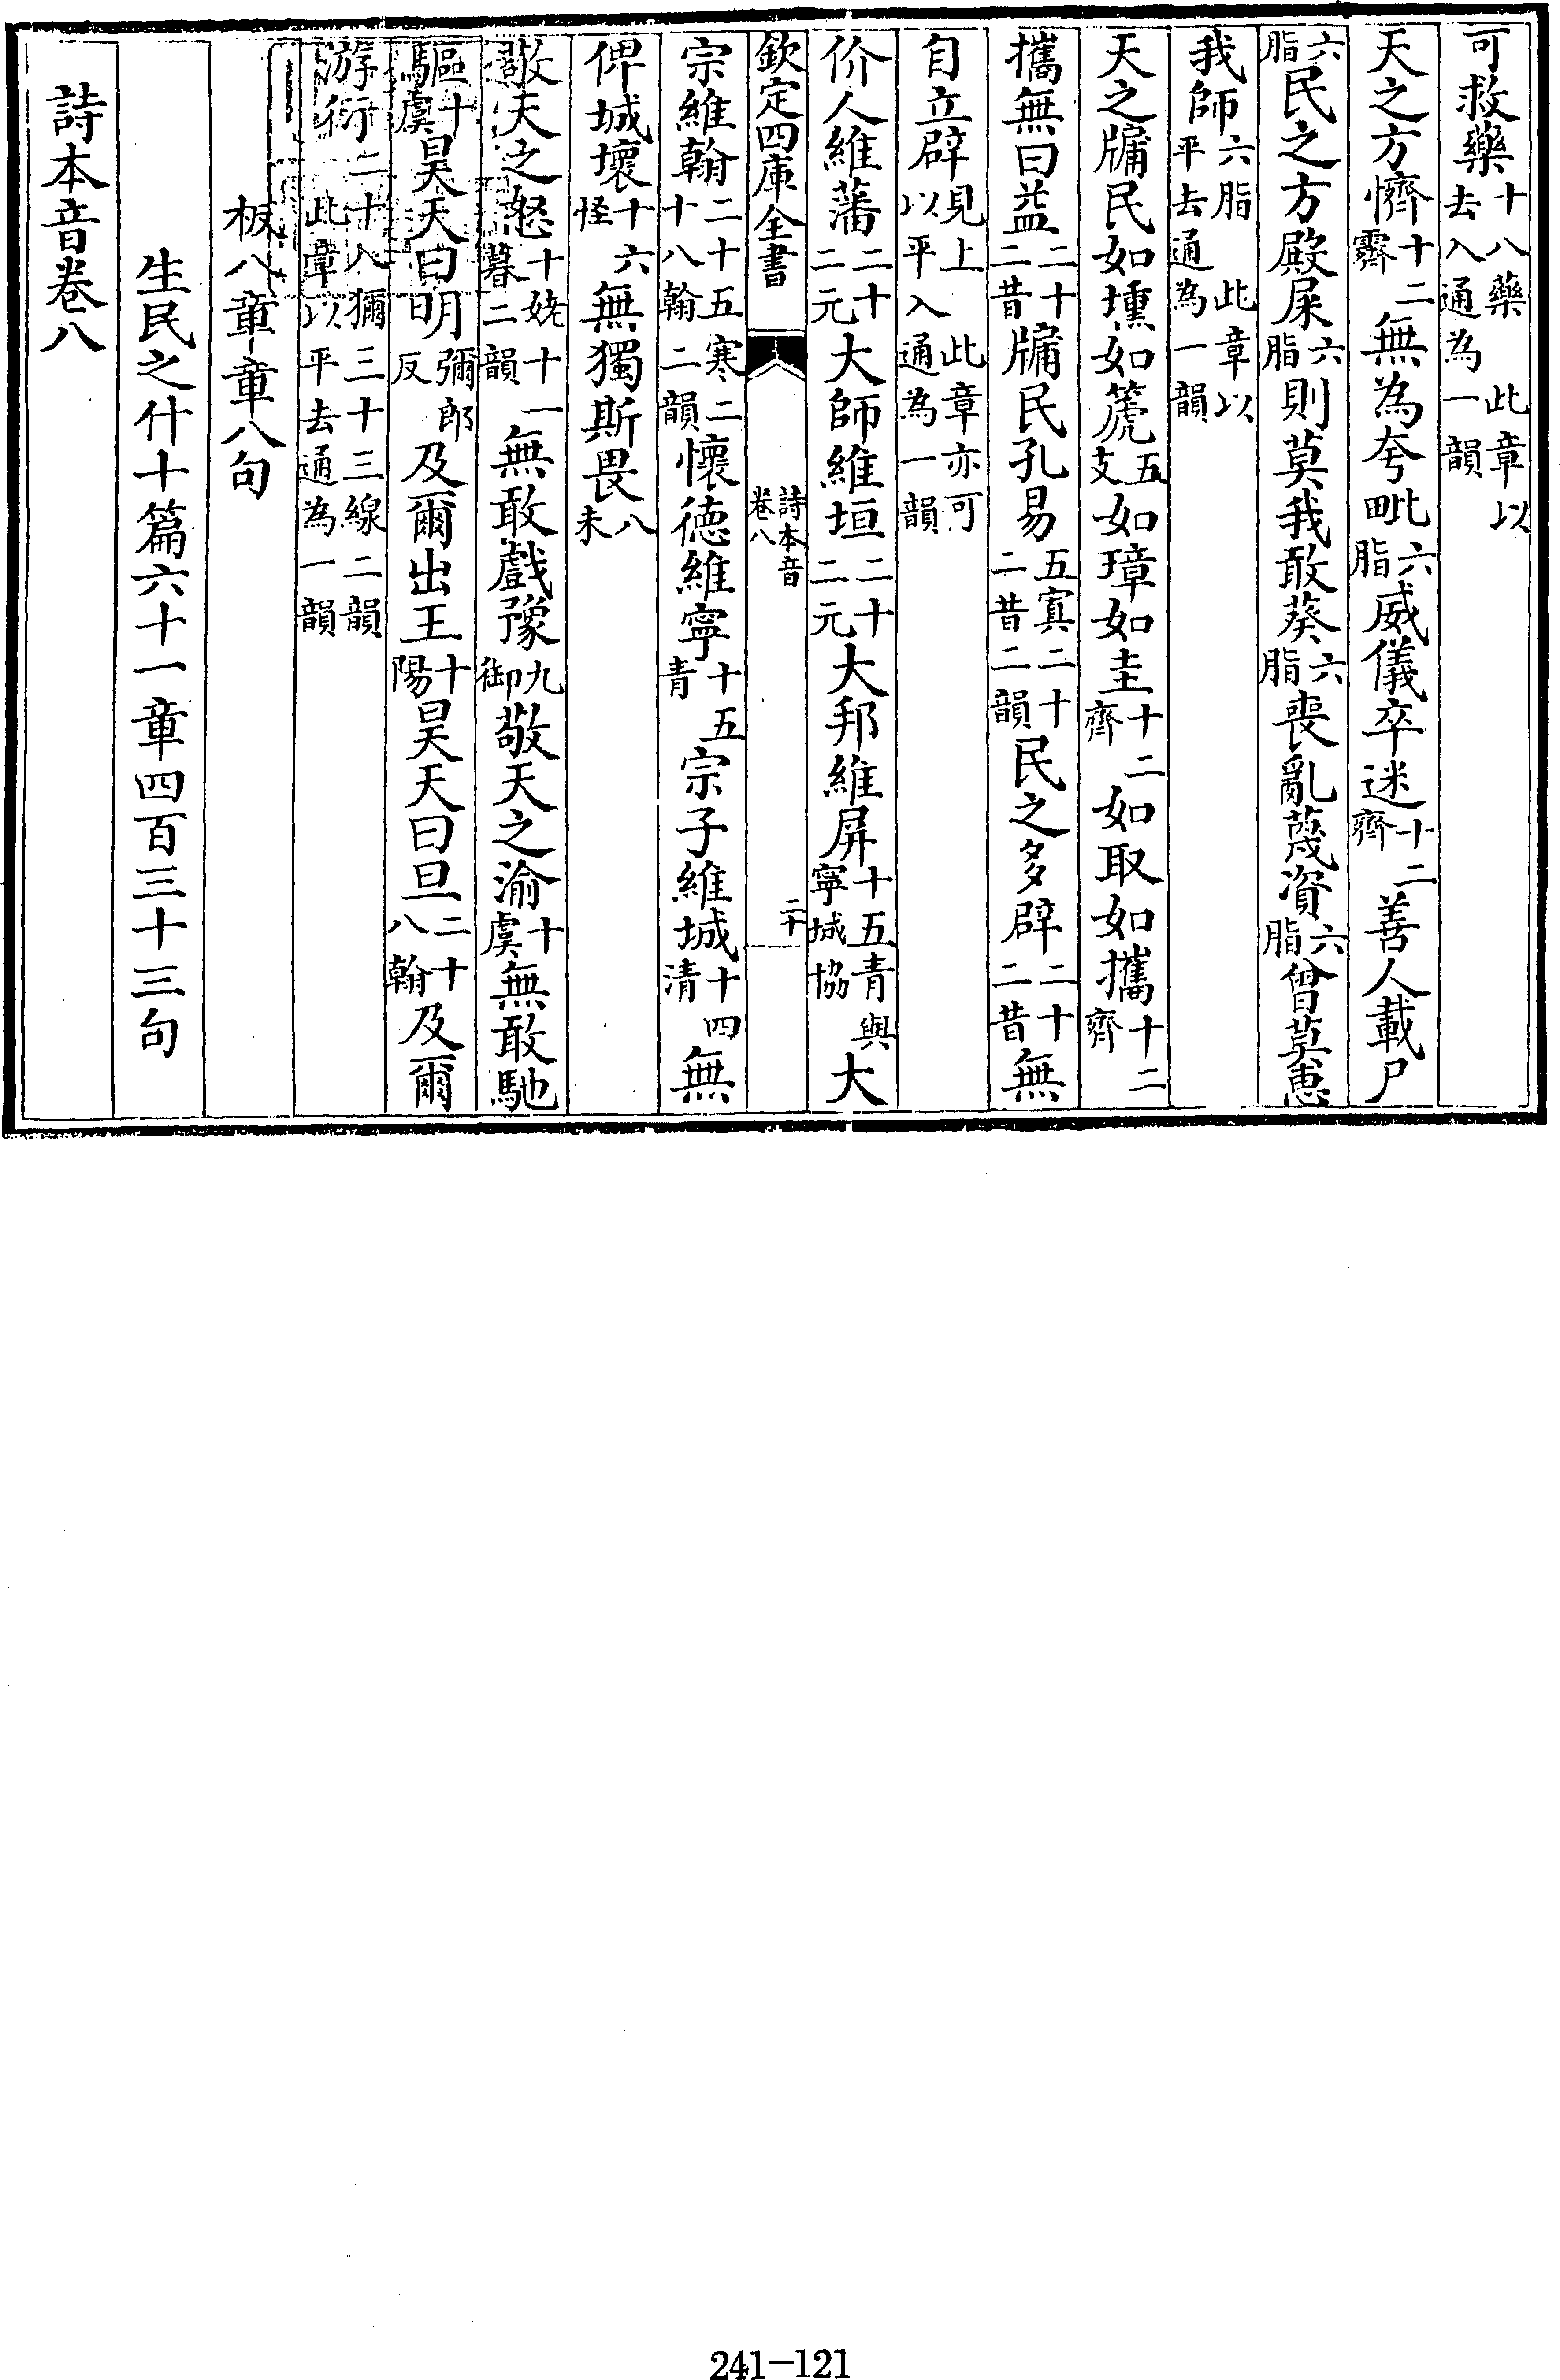 可救藥十八藥 此章以去入通為一韻
天之方懠十二霽無為夸毗六脂威儀卒迷十二齊善人載尸
六脂民之方殿屎六脂則莫我敢葵六脂喪亂蔑資六脂曾莫惠
我師六脂 此章以平去通為一韻
天之牖民如壎如篪五支如璋如圭十二齊如取如攜十二齊
攜無曰益二十二昔牖民孔易五寘二十二昔二韻民之多辟二十二昔無
自立辟見上 此章亦可以平入通為一韻
价人維藩二十二元大師維垣二十二元大邦維屏十五青與寧城協大
欽定四庫全書 詩本音卷八 二十
宗維翰二十五寒二十八翰二韻懷德維寧十五青宗子維城十四清無
俾城壞十六怪無獨斯畏八未
敬天之怒十姥十一暮二韻無敢戲豫九御敬天之渝十虞無敢馳
驅十虞昊天曰明彌郎反及爾出王十陽昊天曰旦二十八翰及爾
游衍二十八獮三十三線二韻此章以平去通為一韻
板八章章八句
生民之什十篇六十一章四百三十三句
詩本音卷八
241-121